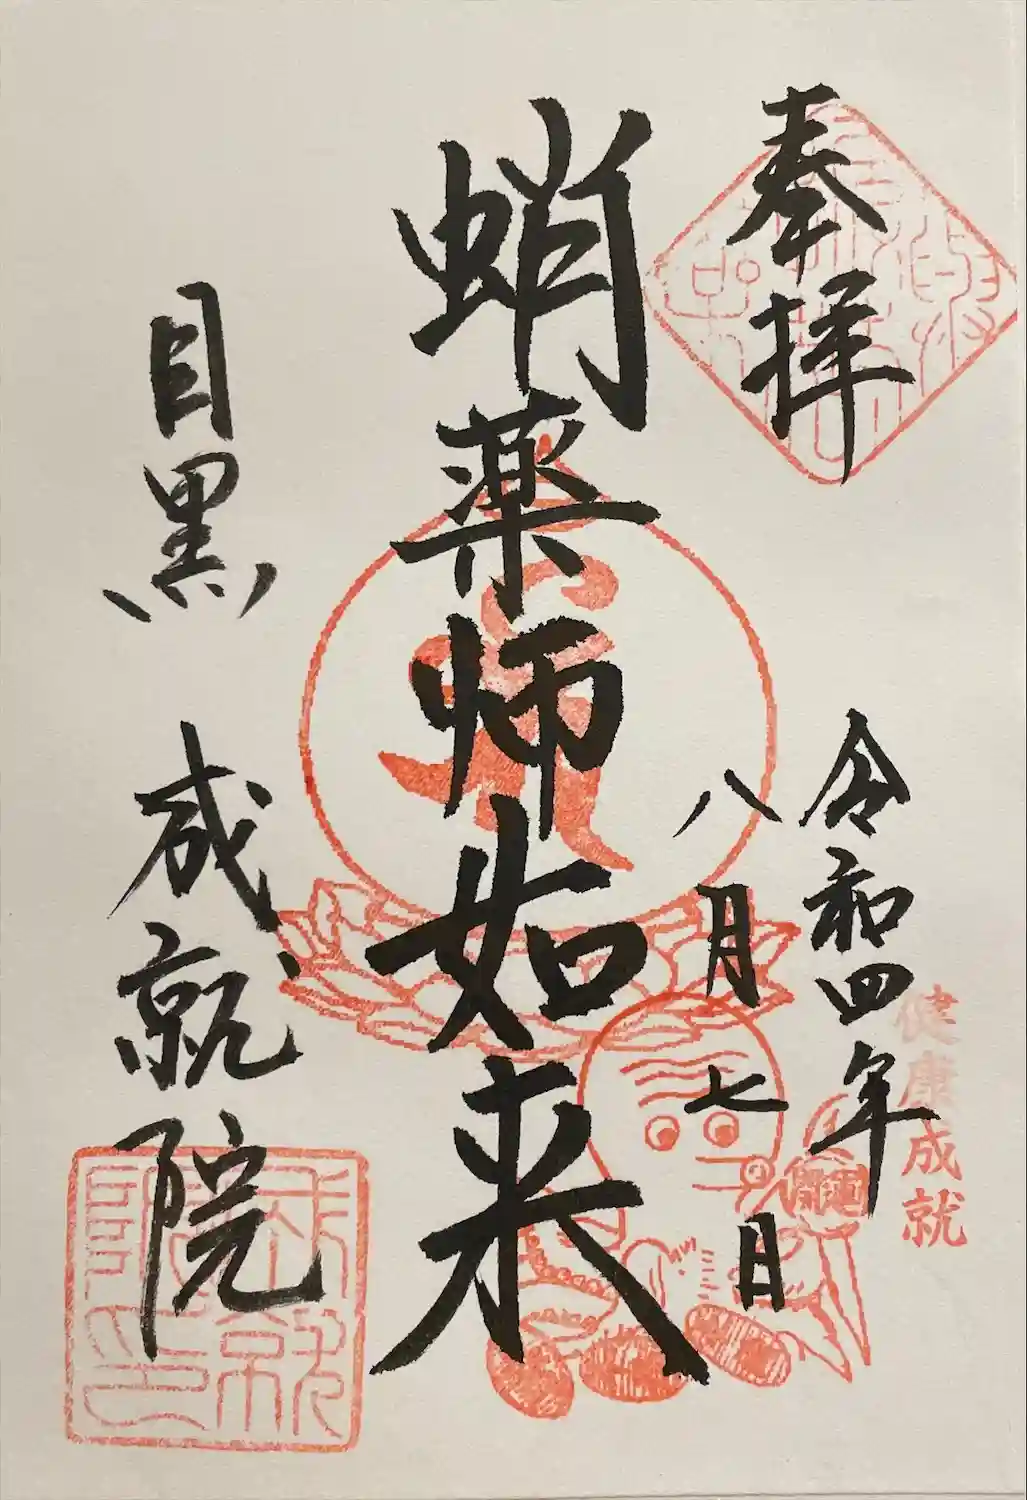 奉拝
令和四年
八月七日
健康成就
開運
蛸薬師如来
目黒 成就院
成就院印